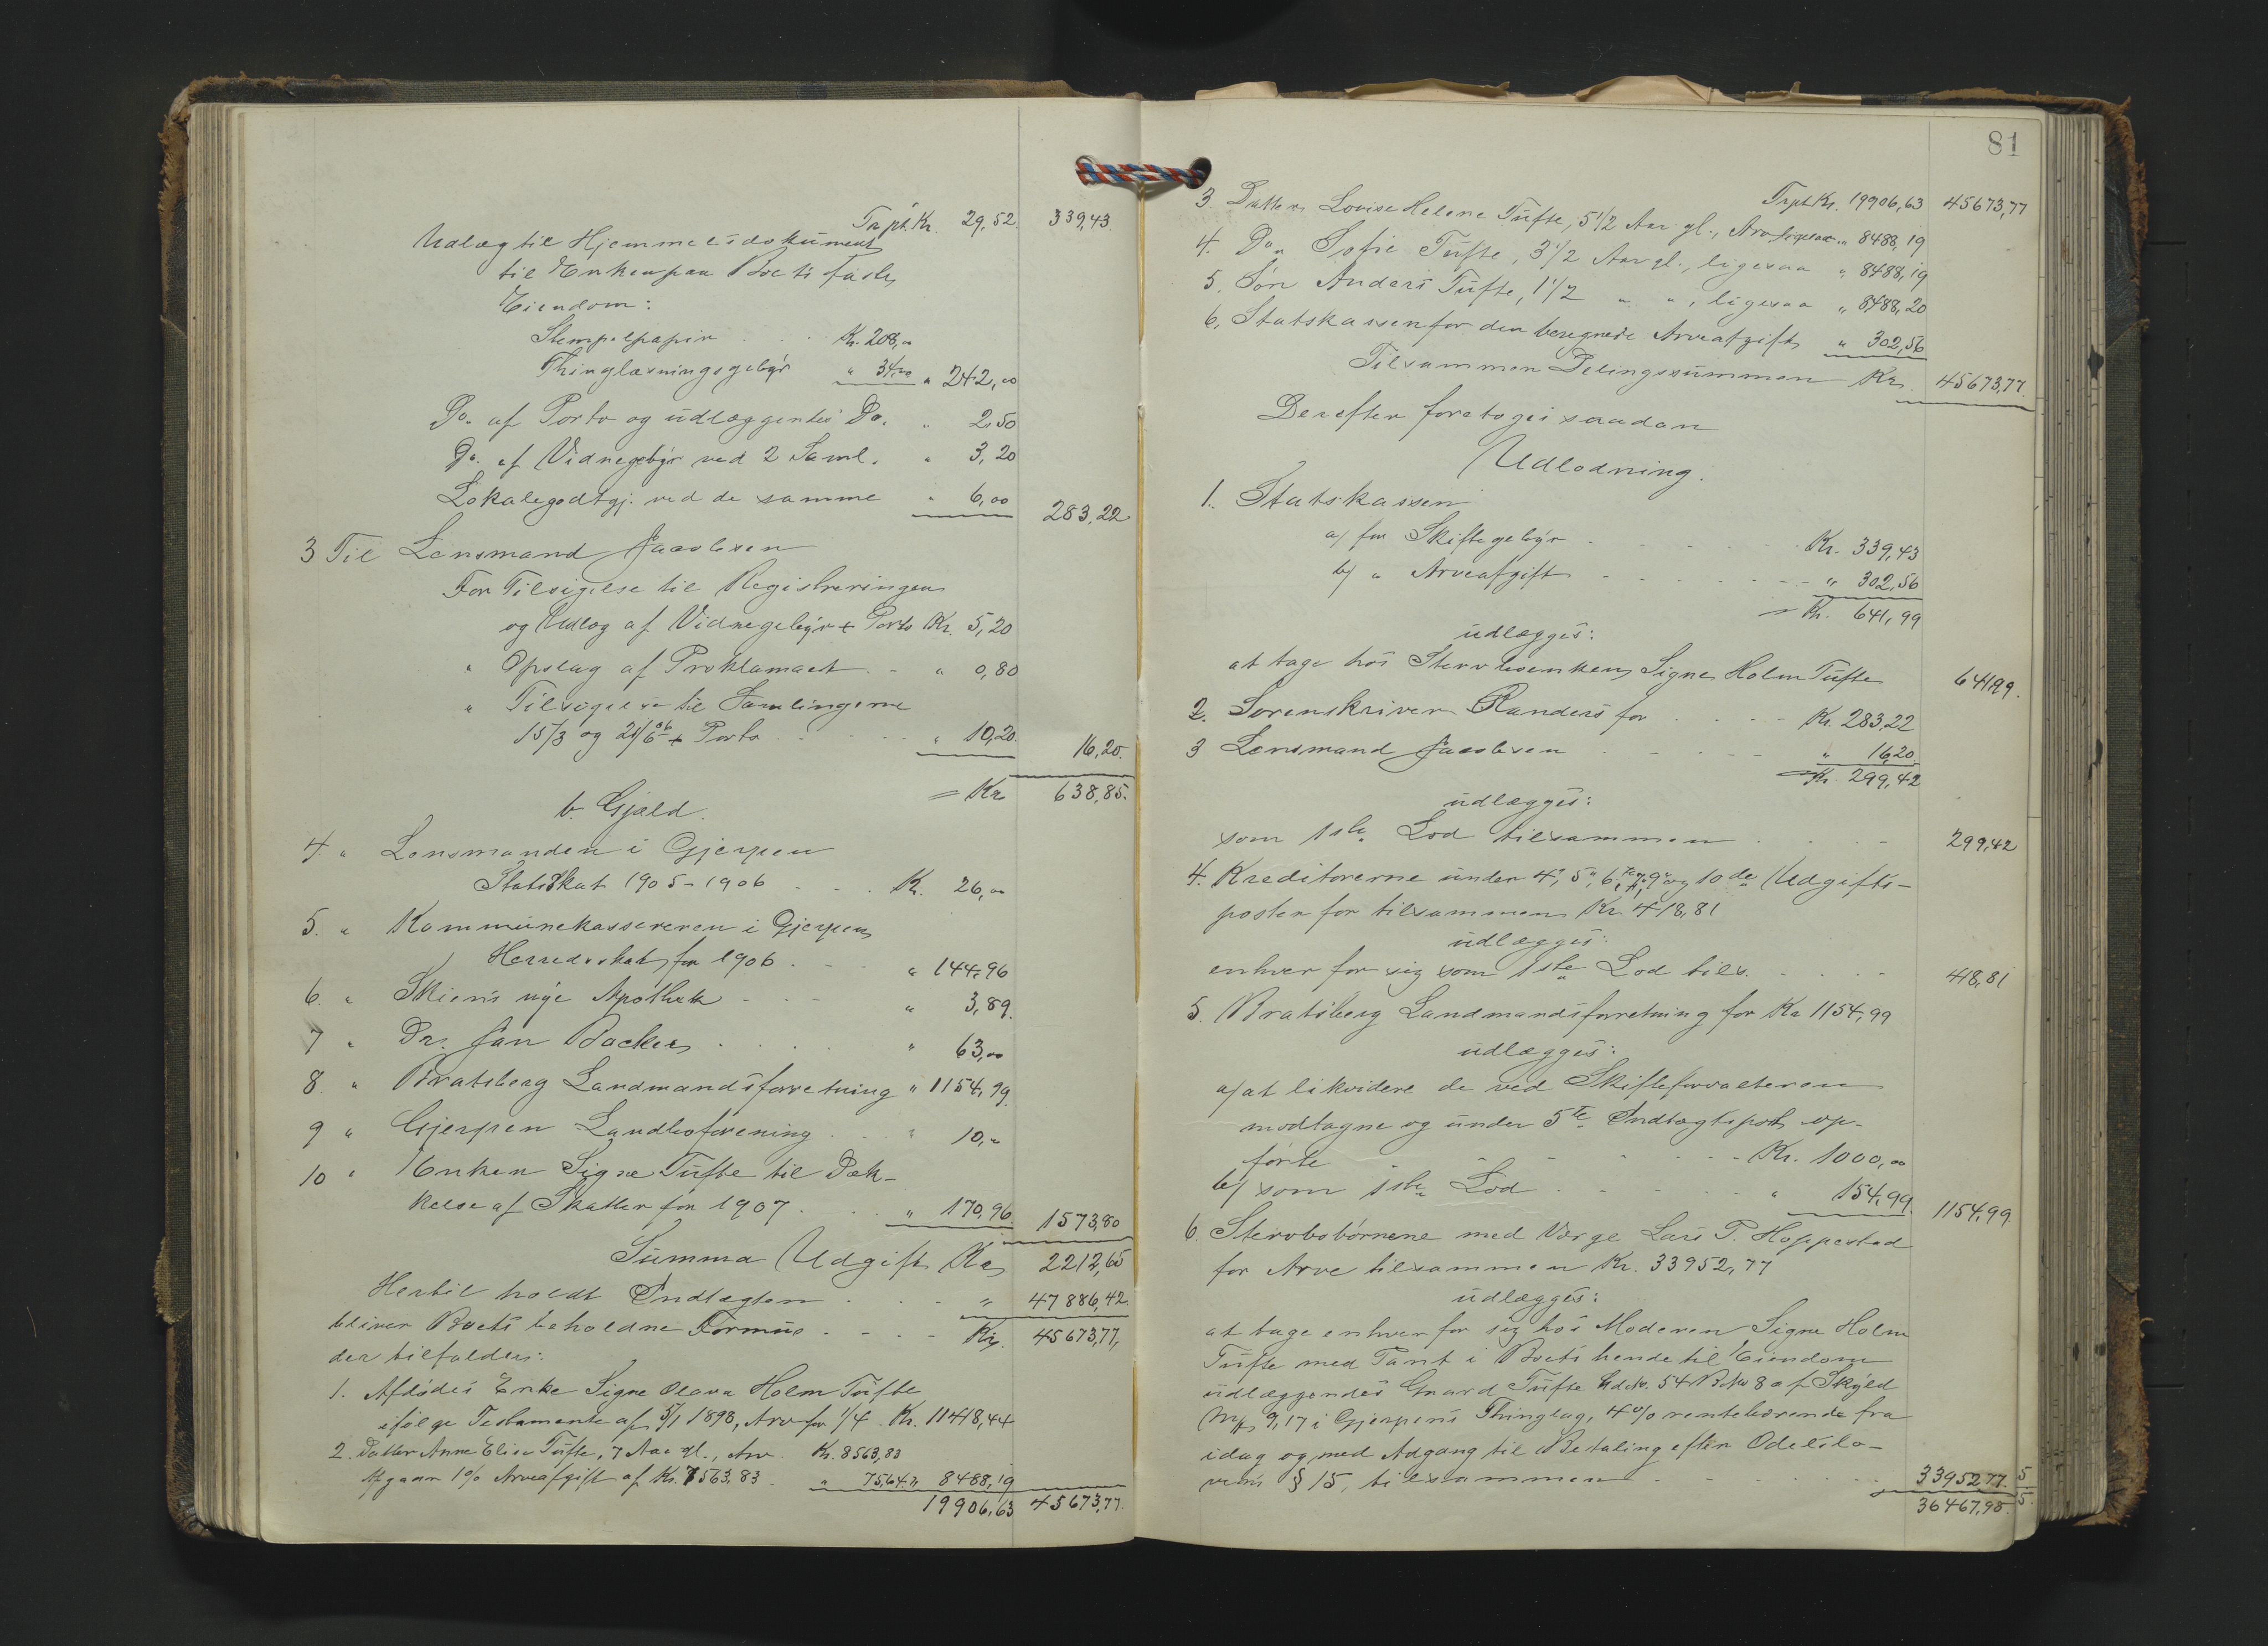 Trpt. Kr. 29,52. 339,43.
Udlæg til Hjemmelsdokument
til Enken paa Boets faste
Eiendom:
Stempelpapir . . . Kr. 208,00
Thinglæsningsgebyr " 34,00 " 242,00
Do. af Porto og udlæggendes Do. " 2,50
Do. af Vidnegebyr ved 2 Saml. " 3,20
Lokalegodtgj. ved de samme " 6,00 283,22
3 Til Lensmand Jacobsen
For Tilsigelse til Registreringen
og Udlæg af Vidnegebyr + Porto Kr. 5,20
" Opslag af Proklamaet . - " 0,80
" Tilsigelse til Samlingerne
15/3 og 21/6 06 + Porto . . . " 10,20. 16,20.
= Kr. 638,85.
b. Gjæld.
4 " Lensmanden i Gjerpen
Statsskat 1905-1906 - - . Kr. 26,00
5. " Kommunekassereren i Gjerpen
Herredsskat for 1906 . - " 144,96
6. " Skiens nye Apothek - - - " 3,89.
7 " Dr. Jan Backer . . . . " 63,00
8. " Bratsberg Landmandsforretning " 1154,99.
9 " Gjerpen Landboforening . . " 10,-
10 " Enken Signe Tufte til Dæk-
kelse af Skatter for 1907 . . . " 170,96. 1573,80
Summa Udgift Kr. 2212,65
Hertil holdt Indtægten . . . " 47886,42.
bliver Boets beholdne Formue - - - - Kr. 45673,77,
der tilfalder:
1. Afdødes Enke Signe Olava Holm Tufte
ifølge Testamente af 5/1 1898, Arv for 1/4 . Kr. 11418,44
2. Datter Anne Elise Tufte, 7 Aar gl., Arv Kr. 8563,83
Afgaar 1% Arveafgift af Kr. 7563,83 - " 75,64 = " 8488,19
19906,63 45673,77.
81
Trpt. Kr. 19906,63 45673,77
3. Datter Lovise Helene Tufte, 5 1/2 Aar gl., Arv ligesaa " 8488,19
4. Do. Sofie Tufte, 3 1/2 Aar gl., ligesaa " 8488,19
5. Søn Anders Tufte, 1 1/2 " ", ligesaa " 8488,20
6. Statskassen for den beregnede Arveafgift " 302,56
Tilsammen Delingssummen Kr. 45673,77.
Derefter foretoges saadan
Udlodning.
1. Statskassen
a/ for Skiftegebyr - - - - - - Kr. 339,43
b/ " Arveafgift - - - - - - - " 302,56
= Kr. 641,99
udlægges:
at tage hos Stervboenken Signe Holm Tufte 641,99.
2. Sorenskriver Randers for . . . - Kr. 283,22
3 Lensmand Jacobsen - - - - " 16,20.
= Kr. 299,42
udlægges:
som 1ste Lod tilsammen . . . - 299,42
4. Kreditorerne under 4", 5", 6", 7", 9" og 10de Udgifts-
poster for tilsammen Kr. 418,81
udlægges:
enhver for sig som 1ste Lod tils. . . . - 418,81
5. Bratsberg Landmandsforretning for Kr. 1154,99
udlægges:
a/ at likvidere de ved Skifteforvalteren
modtagne og under 5te Indtægtspost op-
førte - - - - - - Kr. 1000,00
b/ som 1ste Lod . - - - - " 154,99. 1154,99.
6. Stervbobørnene med Værge Lars P. Hoppestad
for Arve tilsammen Kr. 33952,77
udlægges:
at tage enhver for sig hos Moderen Signe Holm
Tufte med Pant i Boets hende til Eiendom
udlæggendes Gaard Tufte G.No. 54 B.No. 8 af Skyld
Mk. 9,17 i Gjerpens Thinglag, 4% rentebærende fra
idag og med Adgang til Betaling efter Odelslo-
vens § 15, tilsammen - - - - - 33952,77. 5
36467,98. 5.